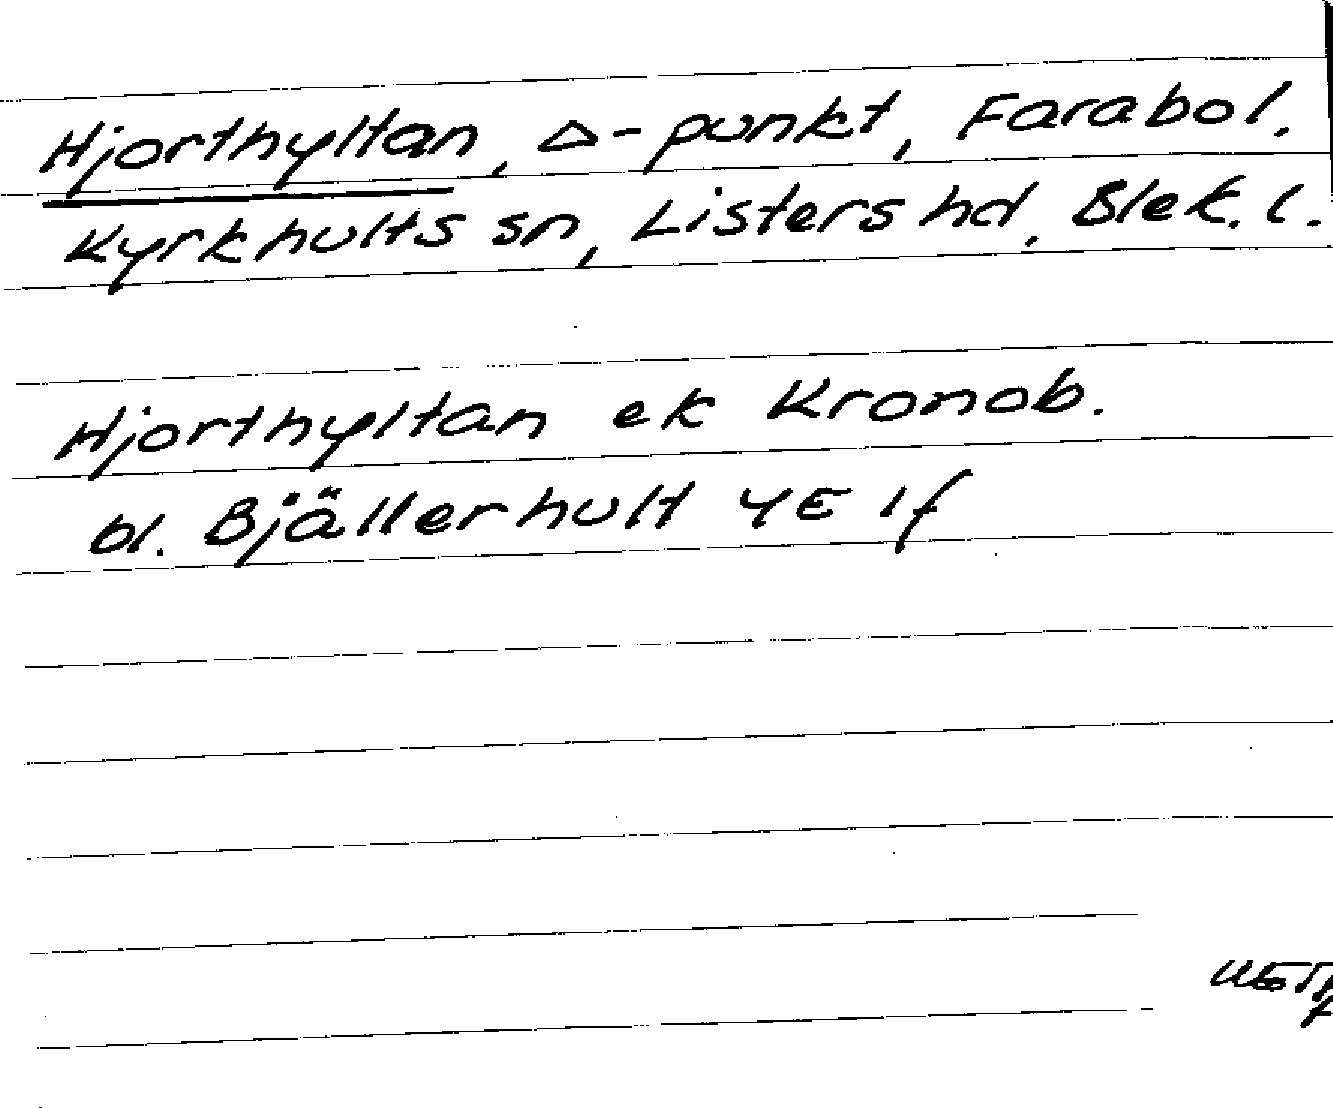 Hjorthyltan, △-punkt, Farabol.
Kyrkhults sn, Listers hd, Blek. l.
Hjorthyltan ek Kronob.
bl. Bjällerhult 4E 1f